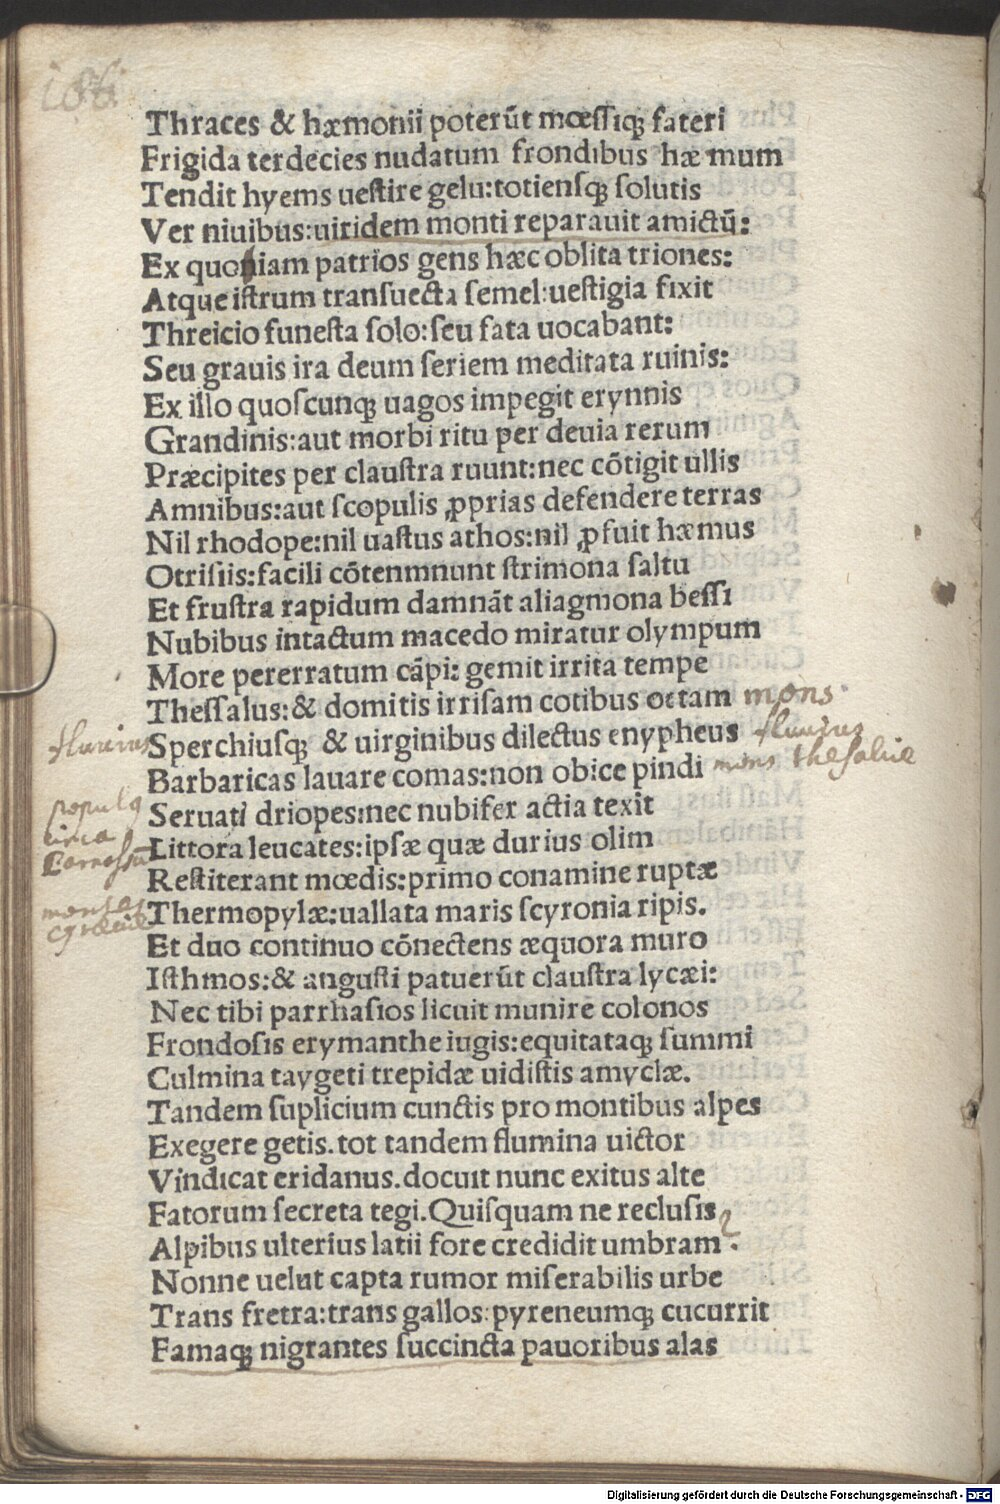 Thraces & hæmonii poterūt mœssiqꝫ fateri
Frigida terdecies nudatum frondibus hæmum
Tendit hyems uestire gelu:totiensqꝫ solutis
Ver niuibus:uiridem monti reparauit amictū:
Ex quoniam patrios gens hæc oblita triones:
Atque istrum transuecta semel:uestigia fixit
Threicio funesta solo:seu fata uocabant:
Seu grauis ira deum seriem meditata ruinis:
Ex illo quoscunqꝫ uagos impegit erynnis
Grandinis:aut morbi ritu per deuia rerum
Præcipites per claustra ruunt:nec cōtigit ullis
Amnibus:aut scopulis ꝓprias defendere terras
Nil rhodope:nil uastus athos:nil ꝓfuit hæmus
Otrisiis:facili cōtenmnunt strimona saltu
Et frustra rapidum damnāt aliagmona bessi
Nubibus intactum macedo miratur olympum
More pererratum cāpi: gemit irrita tempe
Thessalus:& domitis irrisam cotibus oetam mons
fluuius Sperchiusqꝫ & uirginibus dilectus enypheus fluuius
Barbaricas lauare comas:non obice pindi mons thesalie
populꝯ circa Seruati driopes:nec nubifer actia texit
Littora leucates:ipsæ quæ durius olim
Restiterant mœdis:primo conamine ruptæ
Thermopylæ:uallata maris scyronia ripis.
Et duo continuo cōnectens æquora muro
Isthmos:& angusti patuerūt claustra lycæi:
Nec tibi parrhasios licuit munire colonos
Frondosis erymanthe iugis:equitataqꝫ summi
Culmina taygeti trepidæ uidistis amyclæ.
Tandem suplicium cunctis pro montibus alpes
Exegere getis.tot tandem flumina uictor
Vindicat eridanus.docuit nunc exitus alte
Fatorum secreta tegi.Quisquam ne reclusis
Alpibus ulterius latii fore credidit umbram?
Nonne uelut capta rumor miserabilis urbe
Trans fretra:trans gallos:pyreneumqꝫ cucurrit
Famaqꝫ nigrantes succincta pauoribus alas
Digitalisierung gefördert durch die Deutsche Forschungsgemeinschaft - DFG